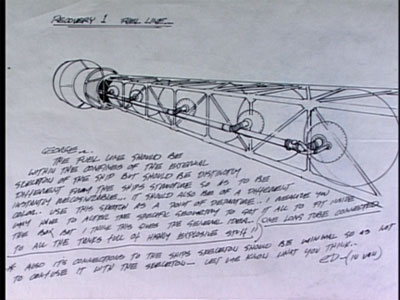 RECOVERY 1 FUEL LINE
GEORGE...
THE FUEL LINE SHOULD BE
WITHIN THE CONFINES OF THE EXTERNAL
SKELETON OF THE SHIP BUT SHOULD BE DISTINCTLY
DIFFERENT FROM THE SHIPS STRUCTURE SO AS TO BE
INSTANTLY RECOGNIZABLE. IT SHOULD ALSO BE OF A DIFFERENT
COLOR. USE THIS SKETCH AS A POINT OF DEPARTURE. I IMAGINE YOU
MAY HAVE TO ALTER THE SPECIFIC GEOMETRY TO GET IT ALL TO FIT INSIDE
THE BOX BUT I THINK THIS GIVES THE GENERAL IDEA. (ONE LONG TUBE CONNECTED
TO ALL THE TANKS FULL OF HIGHLY EXPLOSIVE STUFF!!)
* ALSO IT'S CONNECTIONS TO THE SHIPS SKELETON SHOULD BE MINIMAL SO AS NOT
TO CONFUSE IT WITH THE SKELETON — LET ME KNOW WHAT YOU THINK..